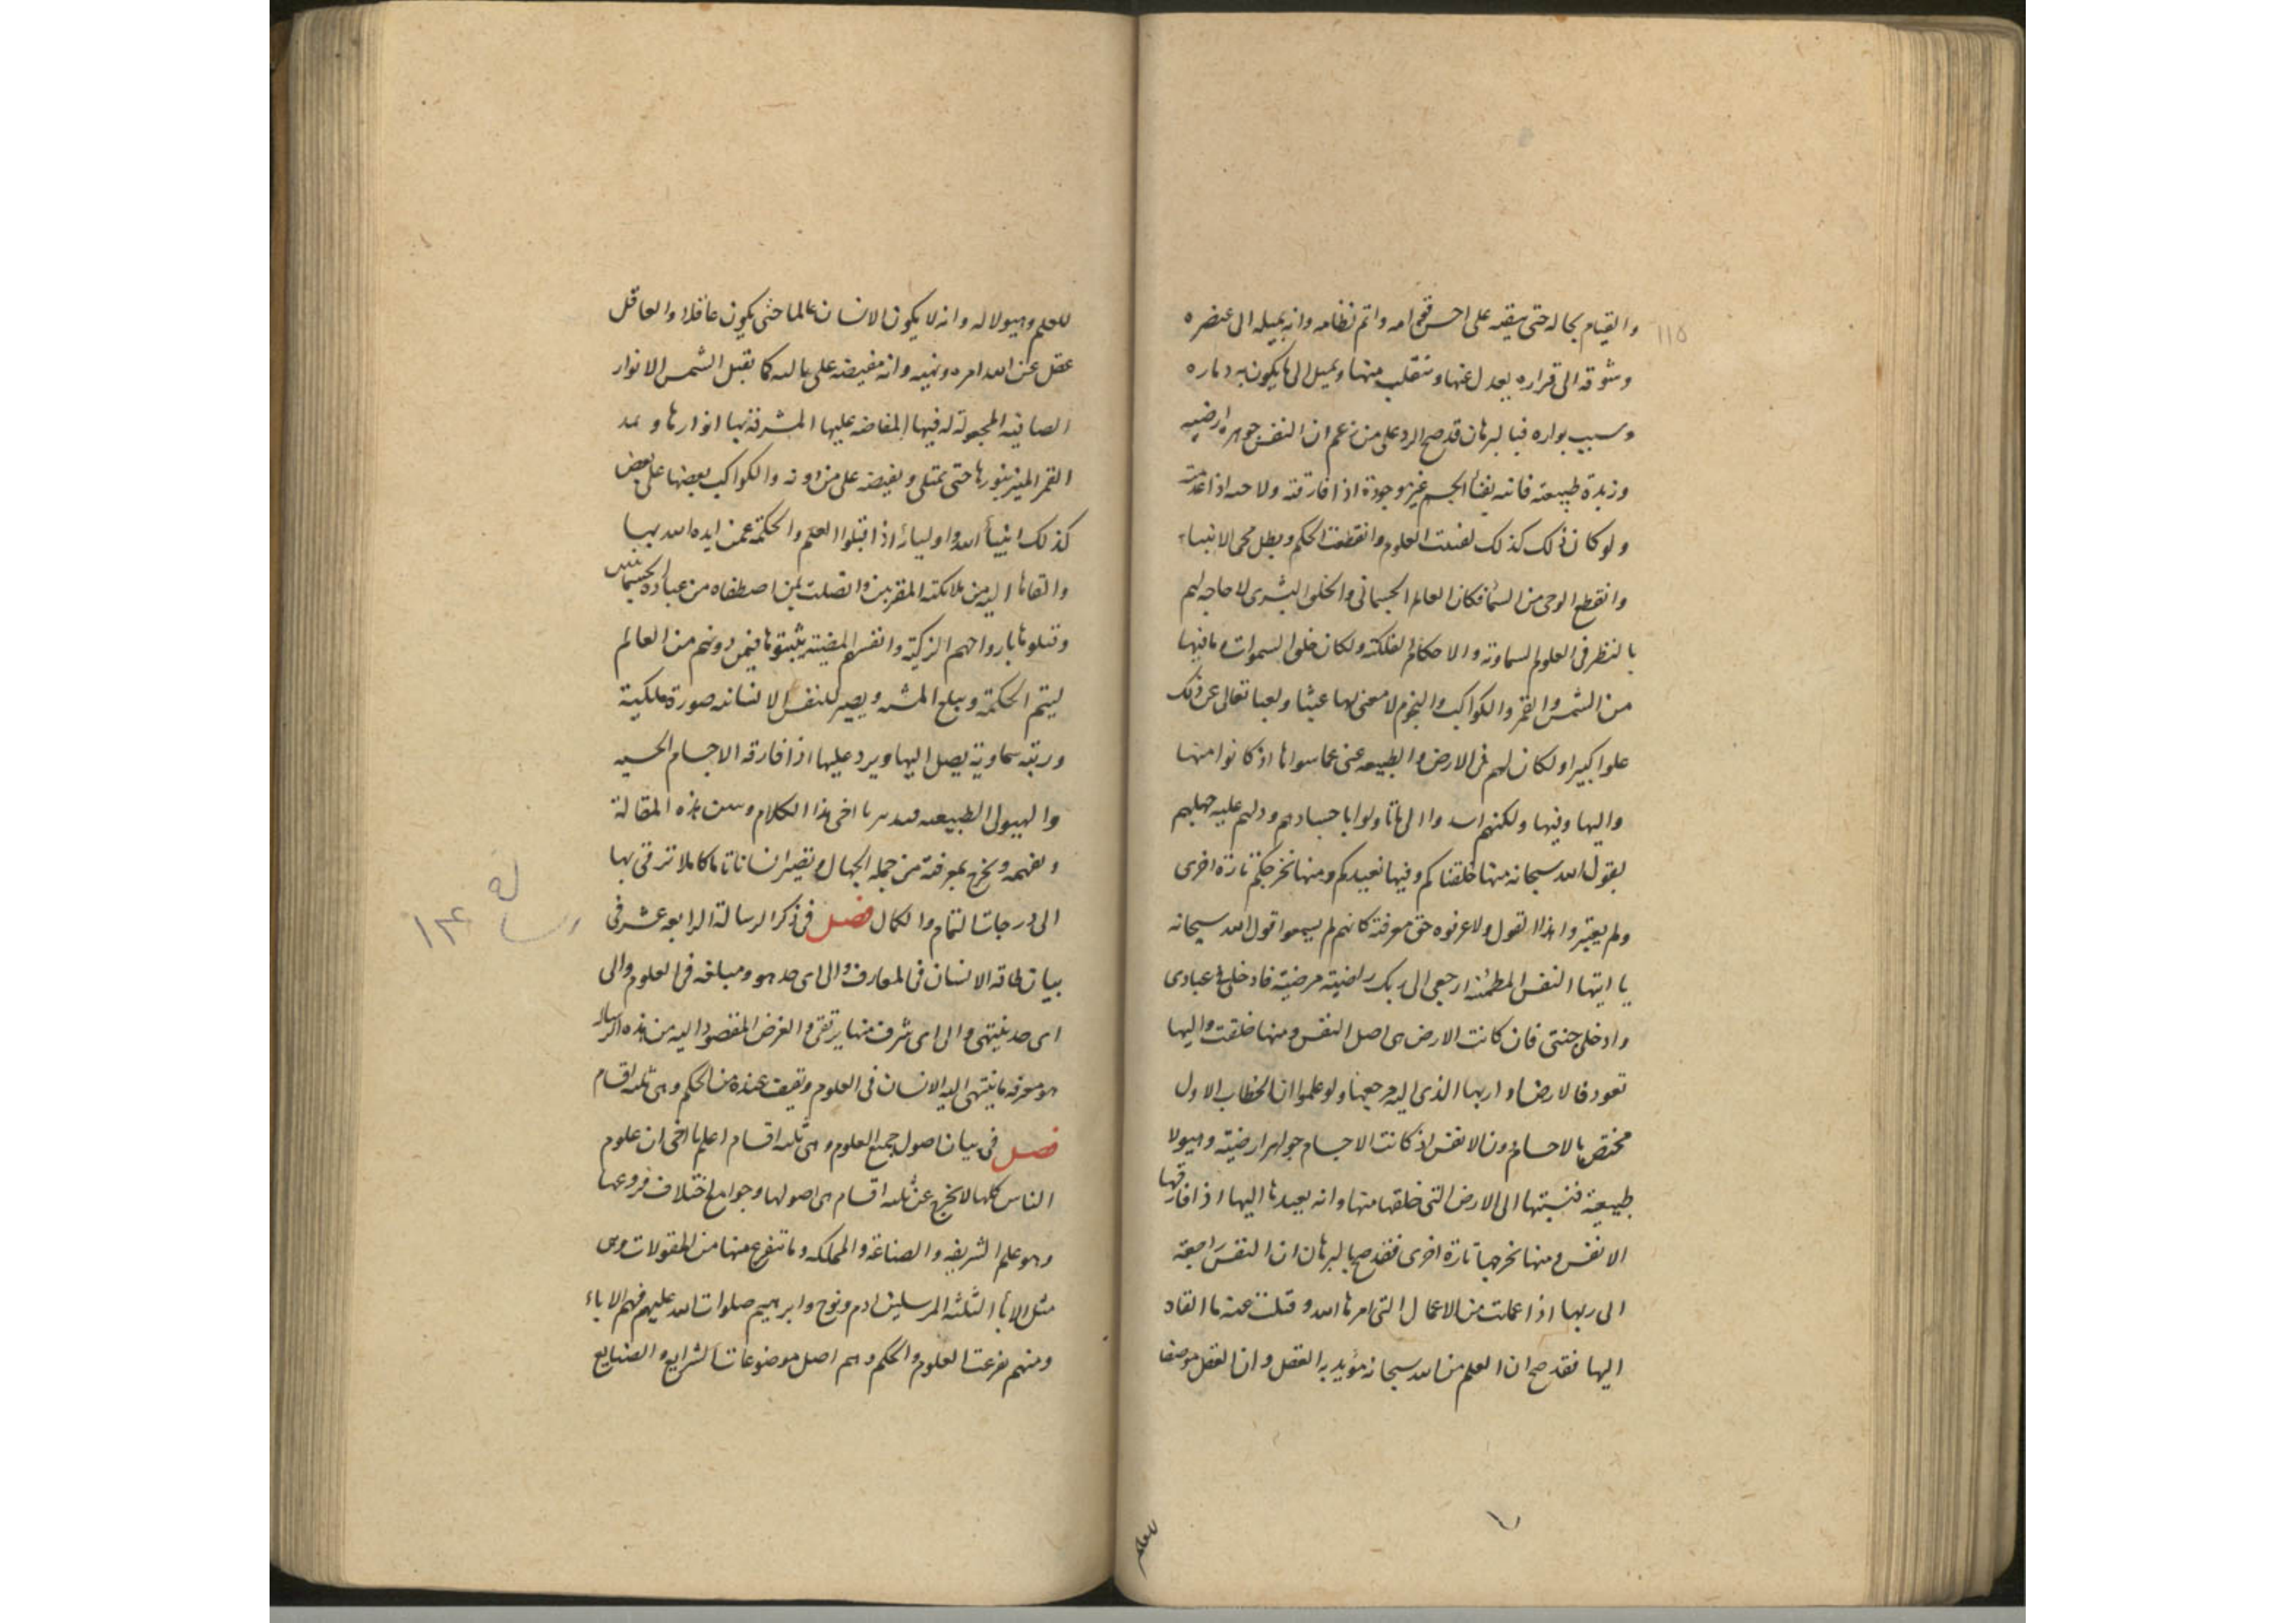 ١١٥
والقيام بحاله حتى يبقيه على احسن قوامه واتم نظامه وانه بميله الى عنصره
وشوقه الى قراره يعدل عنها وينقلب منها ويميل الى ما يكون به دماره
وسبب بواره فبالبرهان قد صح الرد على من زعم ان النفس جوهره ارضيه
وزبدة طبيعته فانه يفنأ الجسم غير موجودة اذا فارقته ولا حيه اذا عدمته
ولو كان ذلك كذلك لفنيت العلوم وانقطعت الحكم وبطل مجى الانبياء
وانقطع الوحى من السمأ فكان العالم الجسمانى والخلق البشرى لا حاجه لهم
بالنظر فى العلوم السماوية والاحكام الفلكية ولكان خلق السموات وما فيها
من الشمس والقمر والكواكب والنجوم لا معنى لها عبثا ولعبا تعالى عن ذلك
علوا كبيرا ولكان لهم فى الارض والطبيعه غنى عما سواها اذ كانوا منها
واليها وفيها ولكنهم الى ما تاولوا باجسادهم ودلهم عليه جهلهم
بقول الله سبحانه منها خلقناكم وفيها نعيدكم ومنها نخرجكم تارة اخرى
ولم يعتبروا هذا القول ولا عرفوه حق معرفته كانهم لم يسمعوا قول الله سبحانه
يا ايتها النفس المطمئنه ارجعى الى ربك راضية مرضية فادخلى فى عبادى
وادخلى جنتى فان كانت الارض هى اصل النفس ومنها خلقت واليها
تعود فالارض اذا ربها الذى اليه مرجعها ولو علموا ان الخطاب الاول
مختص بالاجسام دون الانفس اذ كانت الاجسام جواهر ارضية وهيولا
طبيعية فنسبتها الى الارض التى خلقها منها وانه يعيدها اليها اذا فارقتها
الانفس ومنها نخرجها تارة اخرى فقد صح بالبرهان ان النفس راجعة
الى ربها اذا عملت من الاعمال التى امرها الله وقبلت عنه ما القاه
اليها فقد صح ان العلم من الله سبحانه مؤيد به العقل وان العقل موضعا
للعلم
للعلم وهيولا له وانه لا يكون الانسان عالما حتى يكون عاقلا والعاقل
عقل عن الله امره ونهيه وانه مفيضه على ما يليه كما يقبل الشمس الانوار
الصافية المجعولة له فيها المفاضه عليها المشرقة بها انوارها ويمد
القمر المنير بنورها حتى يمتلى ويفيضه على من دونه والكواكب بعضها على بعض
كذلك انبيأ الله واوليائه اذا قبلوا العلم والحكمة عمن ايده الله بهما
والقاها اليه من ملائكته المقربين واتصلت بمن اصطفاه من عباده الجسمانيين
وقبلوها بارواحهم الزكية وانفسهم المضيئة يثبتوها فيمن دونهم من العالم
ليتم الحكمة ويبلغ المشيه ويصير للنفس الانسانيه صورة ملكية
ورتبة سماوية يصل اليها ويرد عليها اذا فارقه الاجسام الحسيه
والهيولى الطبيعيه فتدبر يا اخى هذا الكلام وتبين هذه المقالة
وتفهمه وتخرج بمعرفته من جمله الجهال وتصير انسانا تاما كاملا تترقى بها
الى درجات التمام والكمال فصل فى ذكر الرسالة الرابعه عشر فى
بيان طاقه الانسان فى المعارف والى اى حد هو ومبلغه فى العلوم والى
اى حد ينتهى والى اى شرف منها يرتقى والغرض المقصود اليه من هذه الرساله
هو معرفه ما ينتهى اليه الانسان فى العلوم وتقف عنده من الحكم وهى ثلثه اقسام
فصل فى بيان اصول جميع العلوم وهى ثلثه اقسام اعلم يا اخى ان علوم
الناس كلها لا يخرج عن ثلثه اقسام هى اصولها وجوامع اختلاف فروعها
وهو علم الشريفه والصناعة والمملكه وما تتفرع منها من المقولات وهى
مثل الابأ الثلثه المرسلين ادم ونوح وابرهيم صلوات الله عليهم فهم الاباء
ومنهم تفرعت العلوم والحكم وهم اصل موضوعات الشرايع والصنايع
رساله ١٤